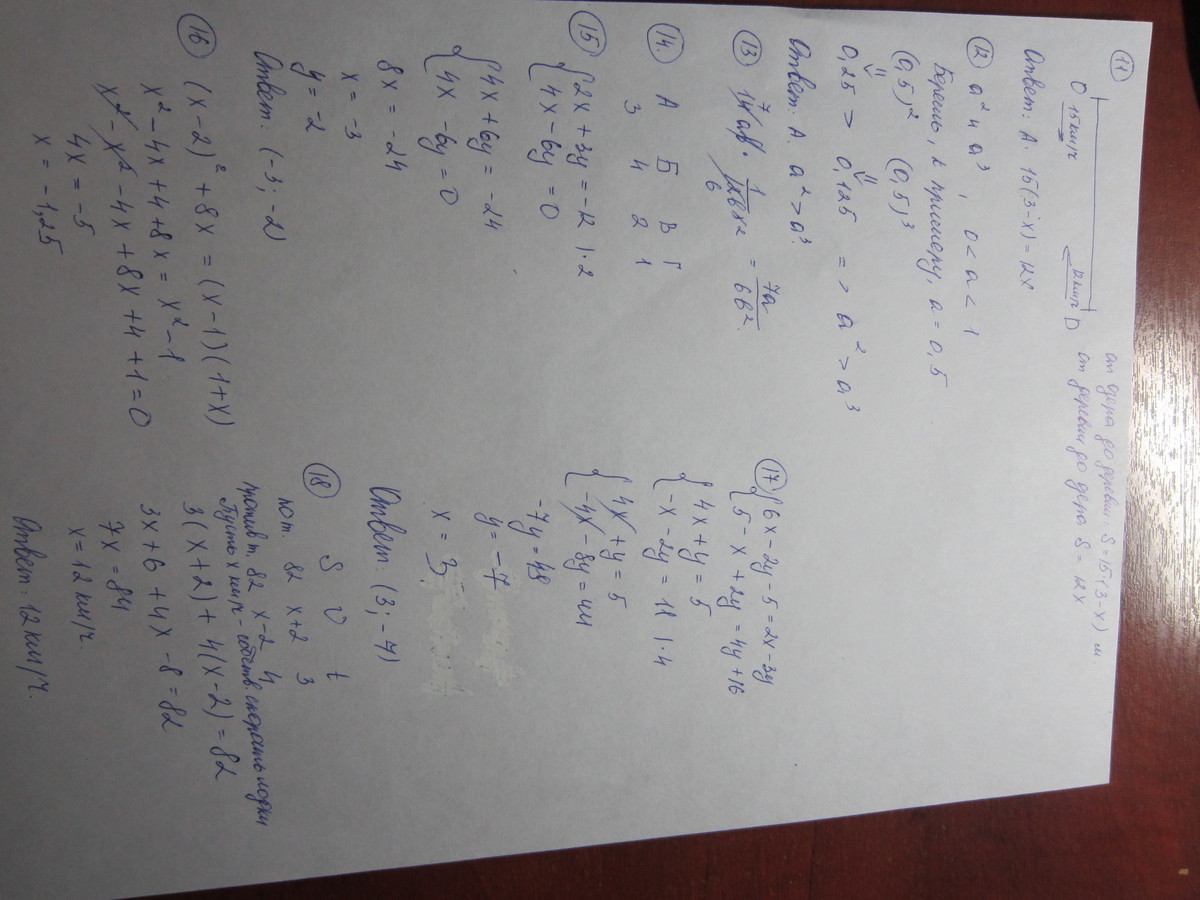 ⑪
O 15 км/ч
12 км/ч D
от озера до деревни: S = 15(3-x) км
от деревни до озера S = 12x
Ответ: А. 15(3-x) = 12x
⑫ a² и a³, 0 < a < 1
Берешь, к примеру, a = 0,5
(0,5)² (0,5)³
0,25 > 0,125 => a² > a³
Ответ: А. a² > a³.
⑬ = 7a/6b².
⑭. А Б В Г
3 4 2 1
⑮ { 2x + 3y = -12 | · 2
{ 4x - 6y = 0
{ 4x + 6y = -24
{ 4x - 6y = 0
8x = -24
x = -3
y = -2
Ответ: (-3; -2)
⑯ (x-2)² + 8x = (x-1)(1+x)
x² - 4x + 4 + 8x = x² - 1
x² - x² - 4x + 8x + 4 + 1 = 0
4x = -5
x = -1,25
⑰ { 6x - 2y - 5 = 2x - 3y
{ 5 - x + 2y = 4y + 16
{ 4x + y = 5
{ -x - 2y = 11 | · 4
{ 4x + y = 5
{ -4x - 8y = 44
-7y = 48
y = -7
x = 3
Ответ: (3; -7)
⑱ S V t
по т. 82 x+2 3
против т. 82 x-2 4
Пусть x км/ч - собств. скорость лодки
3(x+2) + 4(x-2) = 82
3x + 6 + 4x - 8 = 82
7x = 84
x = 12 км/ч.
Ответ: 12 км/ч.